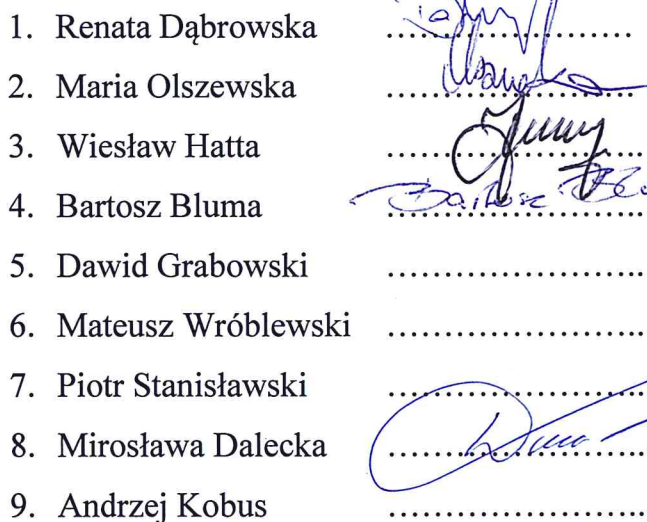 1. Renata Dąbrowska ..............................
2. Maria Olszewska ..............................
3. Wiesław Hatta ..............................
4. Bartosz Bluma .............................. Bartosz
5. Dawid Grabowski ..............................
6. Mateusz Wróblewski ..............................
7. Piotr Stanisławski ..............................
8. Mirosława Dalecka ..............................
9. Andrzej Kobus ..............................